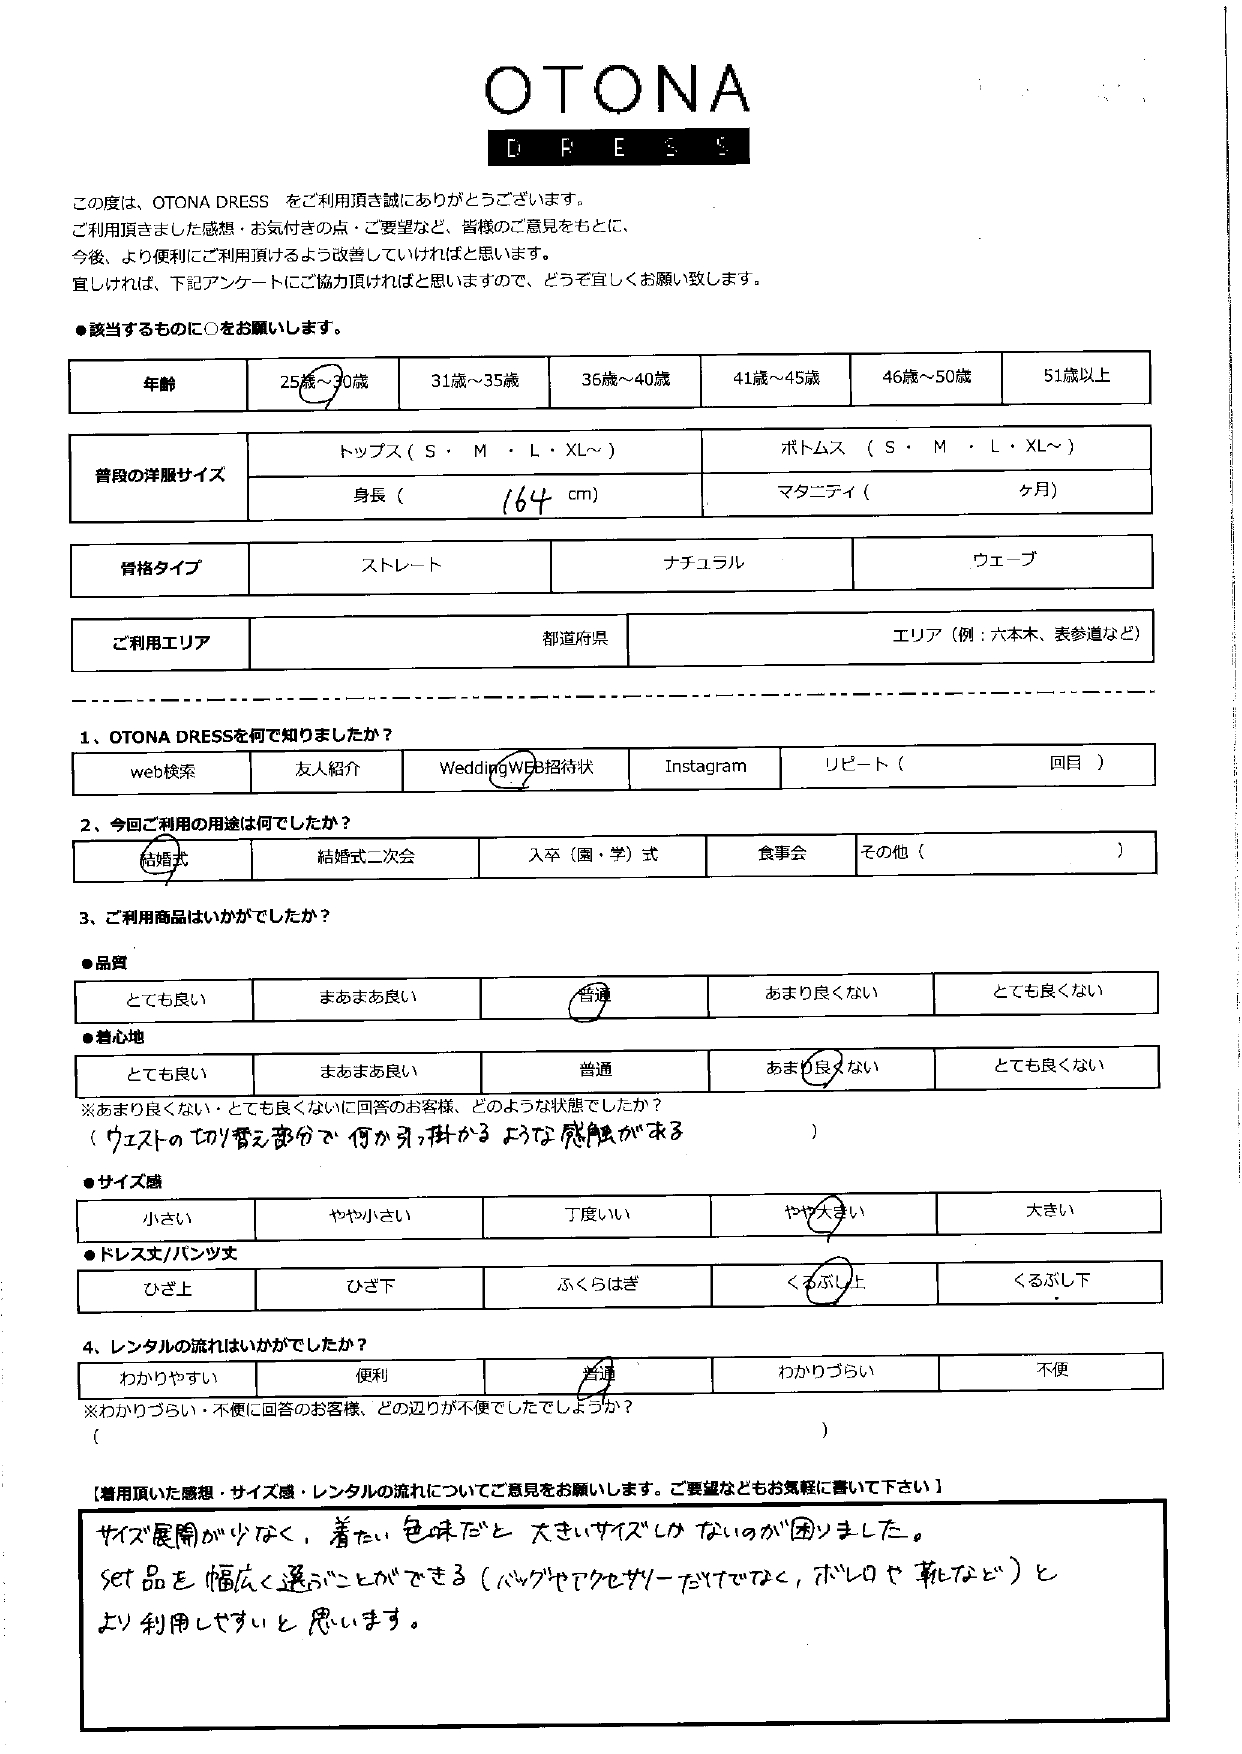 OTONA
DRESS
この度は、OTONA DRESS をご利用頂き誠にありがとうございます。
ご利用頂きました感想・お気付きの点・ご要望など、皆様のご意見をもとに、
今後、より便利にご利用頂けるよう改善していければと思います。
宜しければ、下記アンケートにご協力頂ければと思いますので、どうぞ宜しくお願い致します。
●該当するものに○をお願いします。
年齢 25歳～30歳 31歳～35歳 36歳～40歳 41歳～45歳 46歳～50歳 51歳以上
普段の洋服サイズ トップス ( S ・ M ・ L ・ XL～ ) ボトムス ( S ・ M ・ L ・ XL～ )
身長 ( 164 cm) マタニティ ( ケ月)
骨格タイプ ストレート ナチュラル ウェーブ
ご利用エリア 都道府県 エリア（例：六本木、表参道など）
1、OTONA DRESSを何で知りましたか？
web検索 友人紹介 WeddingWEB招待状 Instagram リピート ( 回目 )
2、今回ご利用の用途は何でしたか？
結婚式 結婚式二次会 入卒（園・学）式 食事会 その他 ( )
3、ご利用商品はいかがでしたか？
●品質
とても良い まあまあ良い 普通 あまり良くない とても良くない
●着心地
とても良い まあまあ良い 普通 あまり良くない とても良くない
※あまり良くない・とても良くないに回答のお客様、どのような状態でしたか？
( ウェストの切り替え部分で何か引っ掛かるような感触がある )
●サイズ感
小さい やや小さい 丁度いい やや大きい 大きい
●ドレス丈/パンツ丈
ひざ上 ひざ下 ふくらはぎ くるぶし上 くるぶし下
4、レンタルの流れはいかがでしたか？
わかりやすい 便利 普通 わかりづらい 不便
※わかりづらい・不便に回答のお客様、どの辺りが不便でしたでしょうか？
( )
【着用頂いた感想・サイズ感・レンタルの流れについてご意見をお願いします。ご要望などもお気軽に書いて下さい】
サイズ展開が少なく, 着たい色味だと大きいサイズしかないのが困りました。
set品を幅広く選ぶことができる (バッグやアクセサリーだけでなく, ボレロや靴など) と
より利用しやすいと思います。